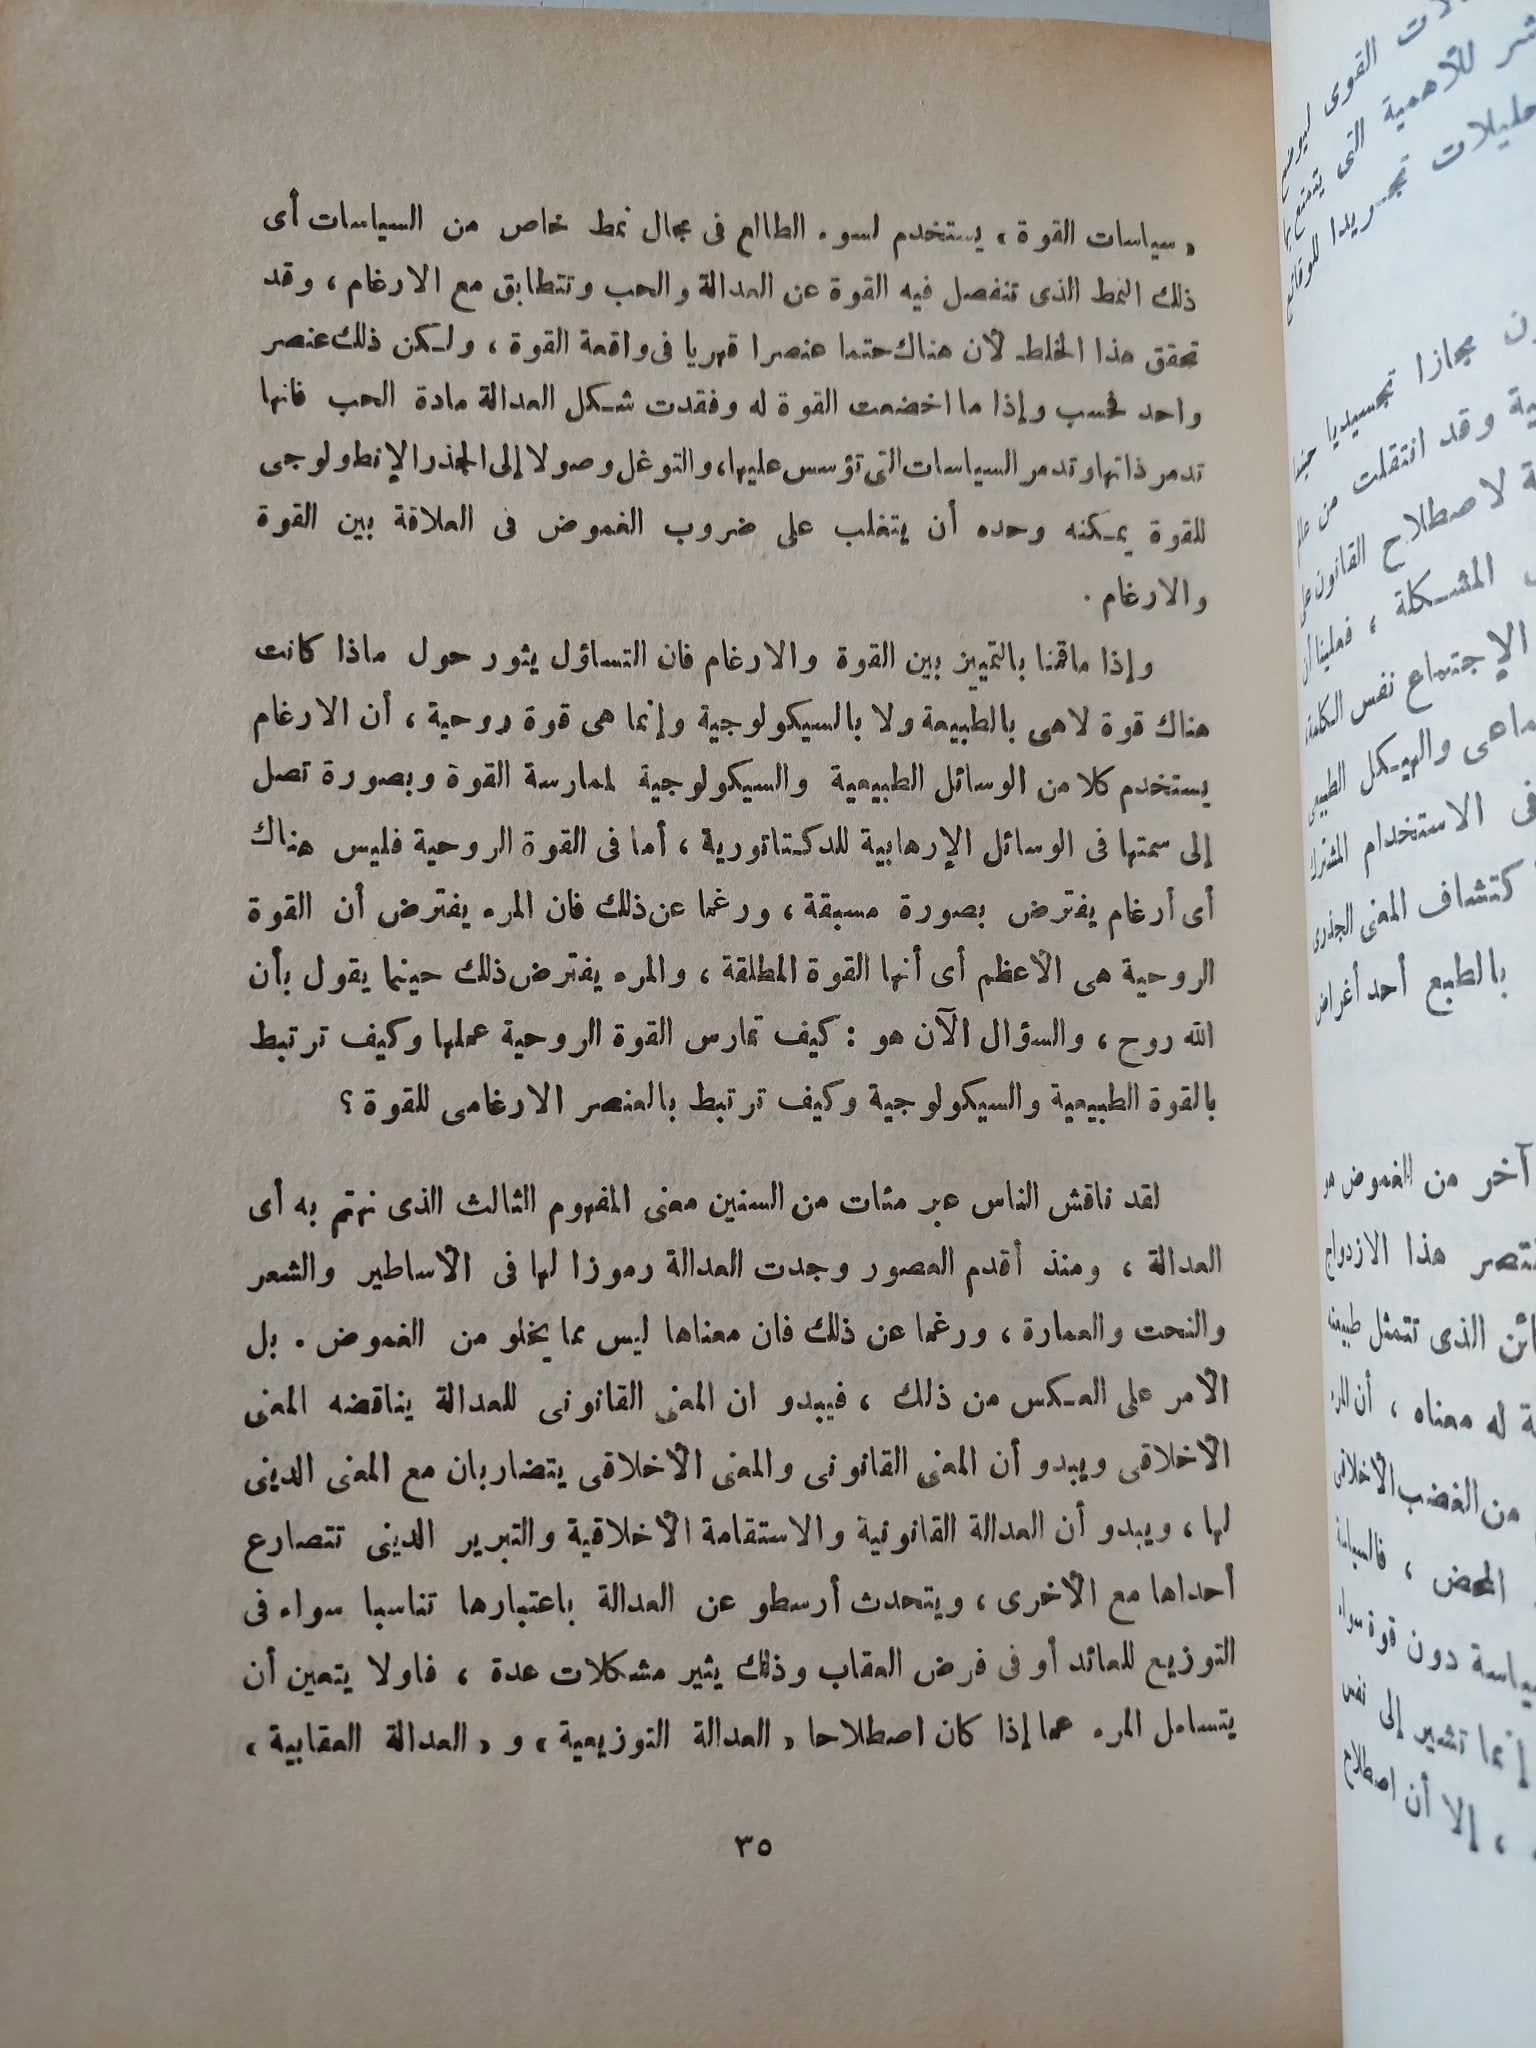 « سياسات القوة » يستخدم لسوء الطالع فى مجال نمط خاص من السياسات أى
ذلك النمط الذى تنفصل فيه القوة عن العدالة والحب وتتطابق مع الارغام ، وقد
تحقق هذا الخلط لأن هناك حتما عنصرا قهريا فى واقعة القوة ، ولكن ذلك عنصر
واحد فحسب وإذا ما اخضعت القوة له وفقدت شكل العدالة مادة الحب فانها
تدمر ذاتها وتدمر السياسات التى تؤسس عليها، والتوغل وصولا إلى الجذر الإنطولوجى
للقوة يمكنه وحده أن يتغلب على ضروب الغموض فى العلاقة بين القوة
والارغام .
وإذا ماقمنا بالتمييز بين القوة والارغام فان التساؤل يثور حول ماذا كانت
هناك قوة لاهى بالطبيعة ولا بالسيكولوجية وإنما هى قوة روحية ، أن الارغام
يستخدم كلا من الوسائل الطبيعية والسيكولوجية لممارسة القوة وبصورة تصل
إلى سمتها فى الوسائل الإرهابية للدكتاتورية ، أما فى القوة الروحية فليس هناك
أى أرغام يفترض بصورة مسبقة ، ورغما عن ذلك فان المرء يفترض أن القوة
الروحية هى الأعظم أى أنها القوة المطلقة ، والمرء يفترض ذلك حينما يقول بأن
الله روح ، والسؤال الآن هو : كيف تمارس القوة الروحية عملها وكيف ترتبط
بالقوة الطبيعية والسيكولوجية وكيف ترتبط بالعنصر الارغامى للقوة ؟
لقد ناقش الناس عبر مئات من السنين معنى المفهوم الثالث الذى نهتم به أى
العدالة ، ومنذ أقدم العصور وجدت العدالة رموزا لها فى الأساطير والشعر
والنحت والعمارة ، ورغما عن ذلك فان معناها ليس مما يخلو من الغموض . بل
الأمر على العكس من ذلك ، فيبدو ان المعنى القانونى للعدالة يناقضه المعنى
الأخلاقى ويبدو أن المعنى القانونى والمعنى الأخلاقى يتضاربان مع المعنى الدينى
لها ، ويبدو أن العدالة القانونية والاستقامة الأخلاقية والتبرير الدينى تتصارع
أحداها مع الأخرى ، ويتحدث أرسطو عن العدالة باعتبارها تناسبا سواء فى
التوزيع للعائد أو فى فرض العقاب وذلك يثير مشكلات عدة ، فاولا يتعين أن
يتساءل المرء عما إذا كان اصطلاحا « العدالة التوزيعية » و « العدالة العقابية »
٣٥
القوى ليوضح
للأهمية التى يتمتع بها
تجريدا للوقائع
مجازا تجسيديا حينما
وقد انتقلت من عالم
لاصطلاح القانون على
المشكلة ، فعلينا أن
الإجتماع نفس الكلمة
والهيكل الطبيعى
فى الاستخدام المشترك
كتشاف المعنى الجذرى
بالطبع أحد أغراض
آخر من الغموض هو
هذا الازدواج
الذى تتمثل طبيعته
له معناه ، أن المرء
من الغضب الأخلاقى
المحض ، فالسياسة
دون قوة سواء
إنما تشير إلى نفس
، إلا أن اصطلاح